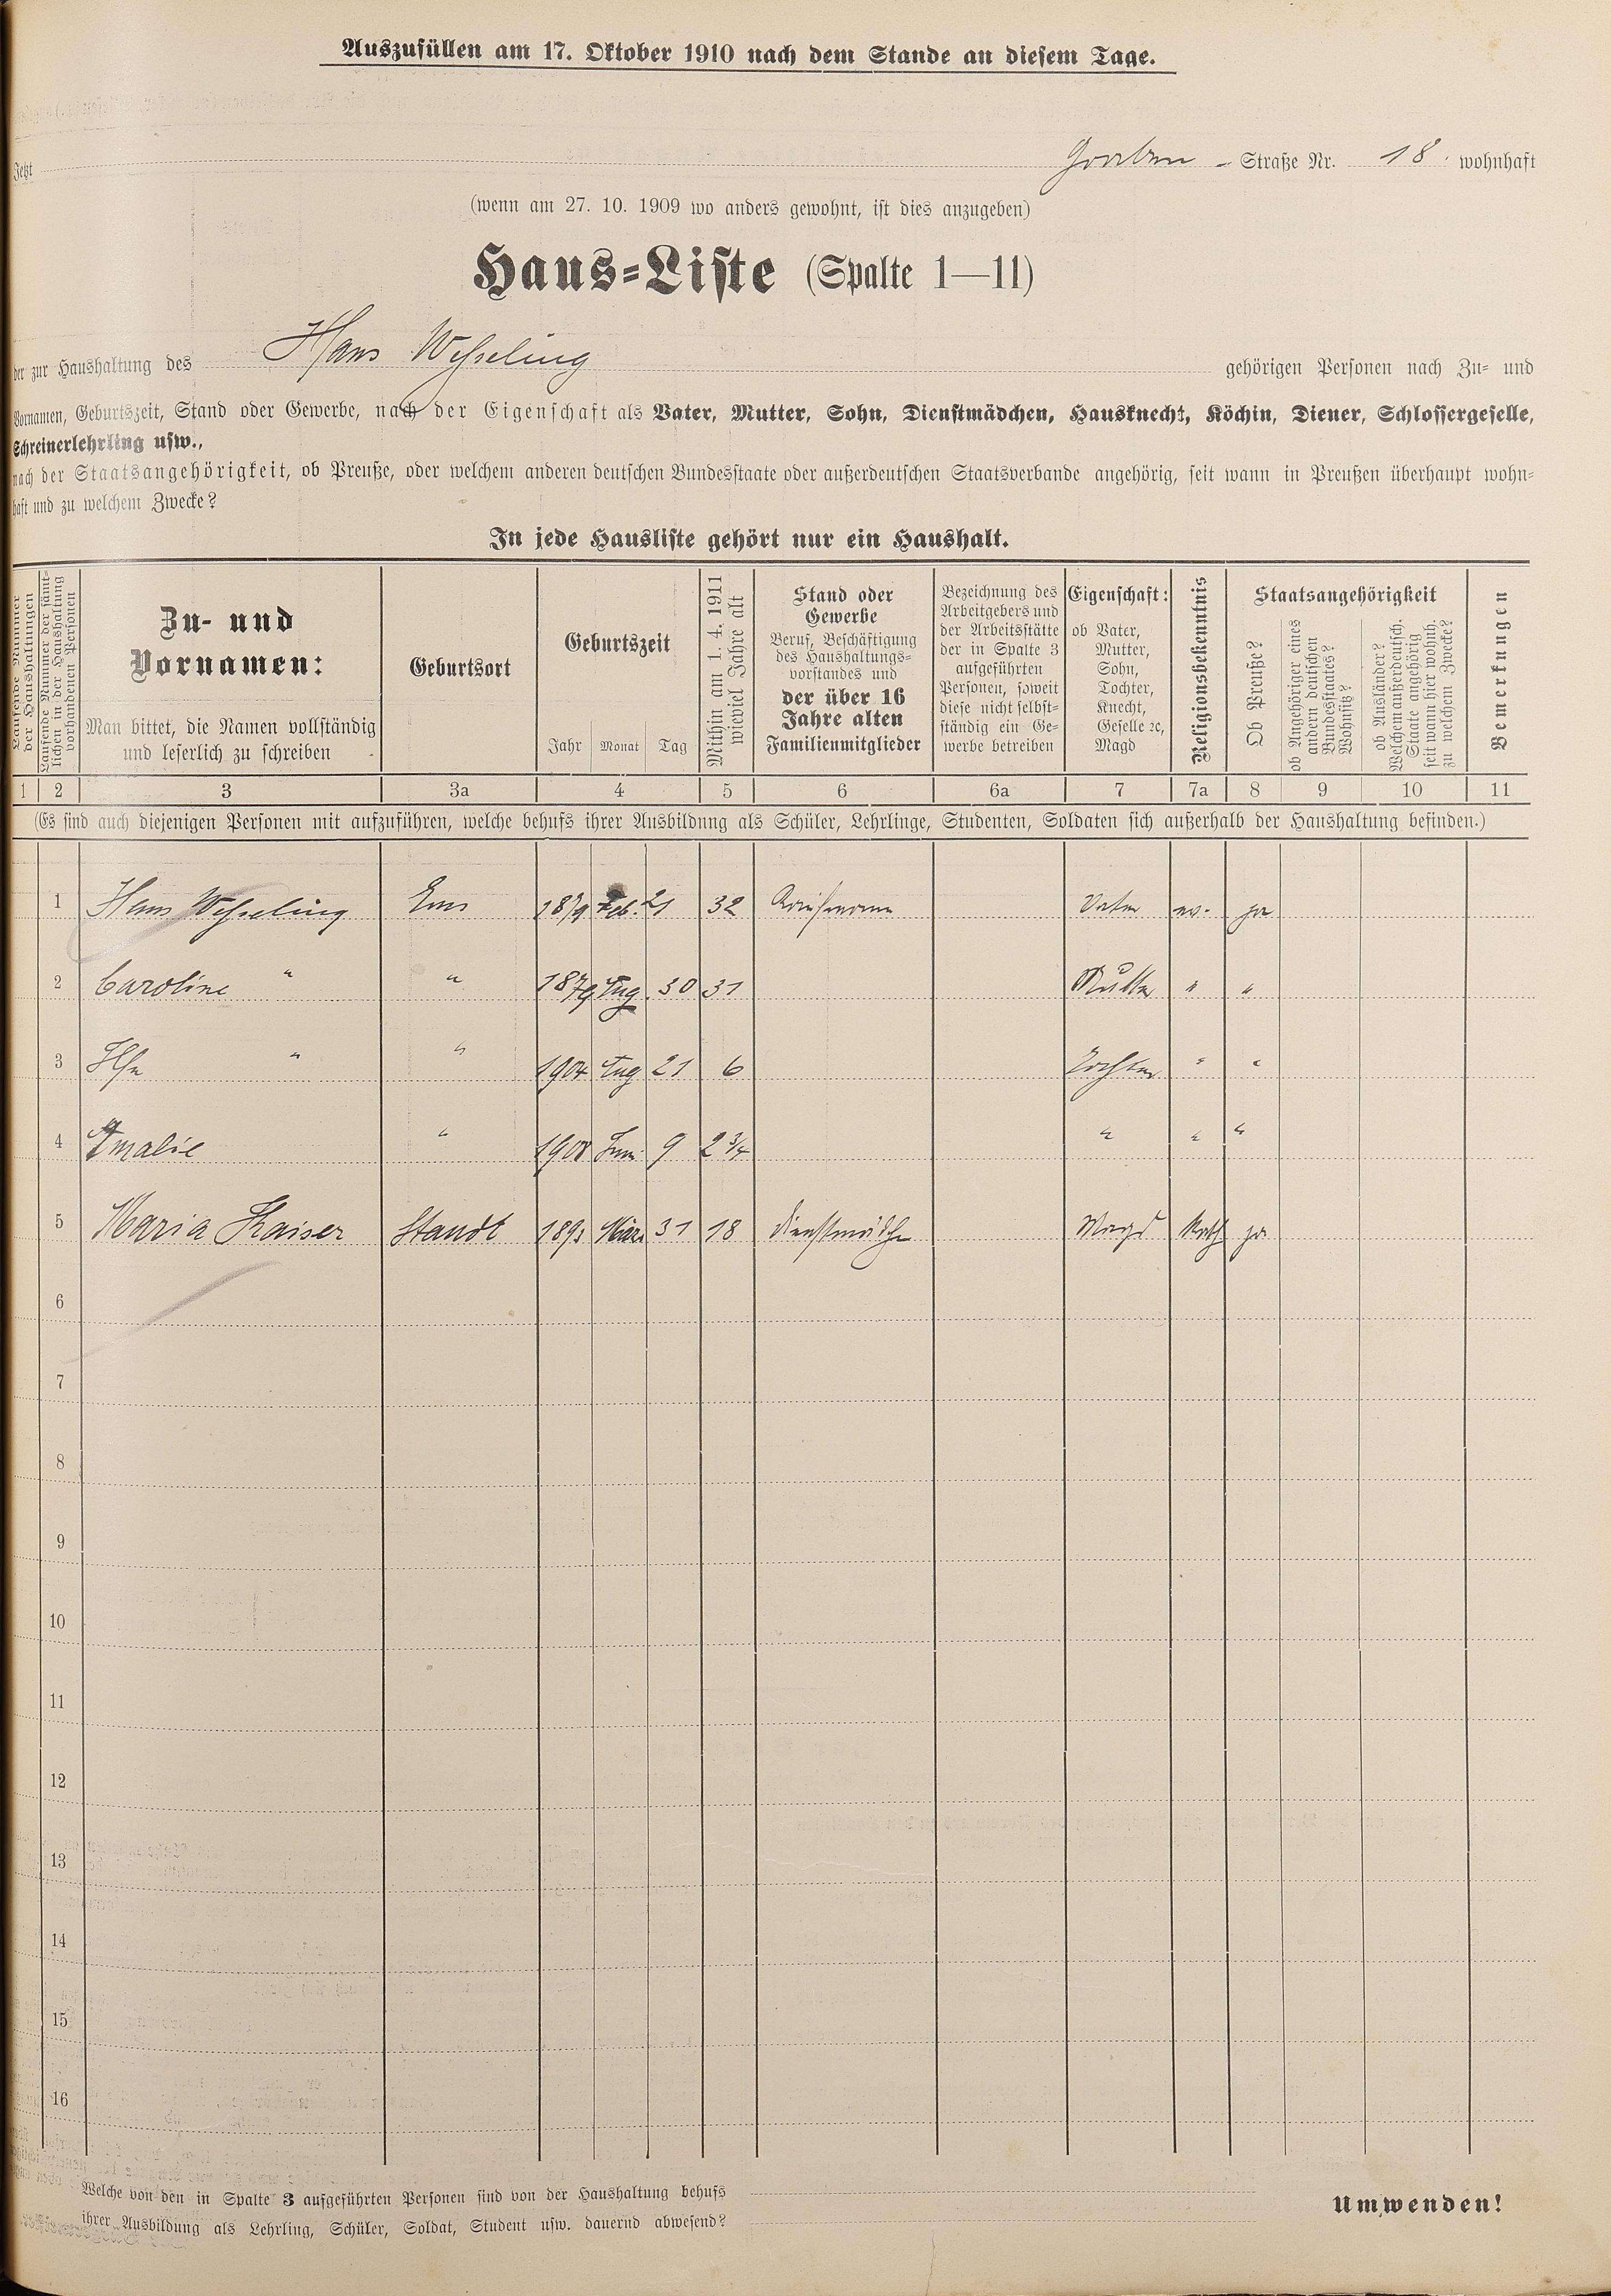 Auszufüllen am 17. Oktober 1910 nach dem Stande an diesem Tage.
Jetzt Graben - Straße Nr. 18. wohnhaft
(wenn am 27. 10. 1909 wo anders gewohnt, ist dies anzugeben)
Haus-Liste (Spalte 1—11)
der zur Haushaltung des Hans Wesseling gehörigen Personen nach Zu- und
Vornamen, Geburtszeit, Stand oder Gewerbe, nach der Eigenschaft als Vater, Mutter, Sohn, Dienstmädchen, Hausknecht, Köchin, Diener, Schlossergeselle,
Schreinerlehrling usw.,
nach der Staatsangehörigkeit, ob Preuße, oder welchem anderen deutschen Bundesstaate oder außerdeutschen Staatsverbande angehörig, seit wann in Preußen überhaupt wohn-
haft und zu welchem Zwecke?
In jede Hausliste gehört nur ein Haushalt.
Laufende Nummer
der Haushaltungen
Laufende Nummer der sämt-
lichen in der Haushaltung
vorhandenen Personen
Zu- und
Vornamen:
Man bittet, die Namen vollständig
und leserlich zu schreiben
Geburtsort
Geburtszeit
Jahr Monat Tag
Mithin am 1. 4. 1911
wieviel Jahre alt
Stand oder
Gewerbe
Beruf, Beschäftigung
des Haushaltungs-
vorstandes und
der über 16
Jahre alten
Familienmitglieder
Bezeichnung des
Arbeitgebers und
der Arbeitsstätte
der in Spalte 3
aufgeführten
Personen, soweit
diese nicht selbst-
ständig ein Ge-
werbe betreiben
Eigenschaft:
ob Vater,
Mutter,
Sohn,
Tochter,
Knecht,
Geselle ꝛc,
Magd
Religionsbekenntnis
Staatsangehörigkeit
Ob Preuße?
ob Angehöriger eines
andern deutschen
Bundesstaates?
Wohnsitz?
ob Ausländer?
Welchem außerdeutsch.
Staate angehörig
seit wann hier wohnh.
zu welchem Zwecke?
Bemerkungen
1 2 3 3a 4 5 6 6a 7 7a 8 9 10 11
(Es sind auch diejenigen Personen mit aufzuführen, welche behufs ihrer Ausbildnng als Schüler, Lehrlinge, Studenten, Soldaten sich außerhalb der Haushaltung befinden.)
1 Hans Wesseling Ems 1879 Feb. 21 32 Kaufmann Vater ev. ja
2 Caroline " " 1879 Aug. 30 31 Mutter " "
3 Ilse " " 1904 Aug 21 6 Tochter " "
4 Amalie " 1908 9 2 3/4 " " "
5 Maria Kaiser Staudt 1893 März 31 18 Dienstmädchen Magd Kath ja
6
7
8
9
10
11
12
13
14
15
16
Welche von den in Spalte 3 aufgeführten Personen sind von der Haushaltung behufs
ihrer Ausbildung als Lehrling, Schüler, Soldat, Student usw. dauernd abwesend?
Umwenden!